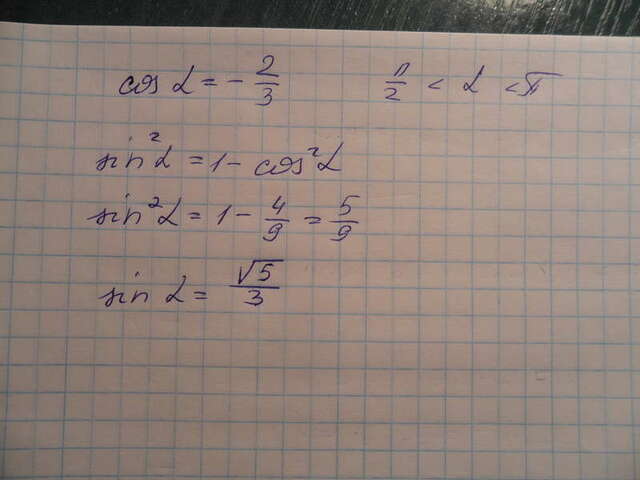 cos α = - 2/3   π/2 < α < π
sin²α = 1 - cos²α
sin²α = 1 - 4/9 = 5/9
sin α = √5/3